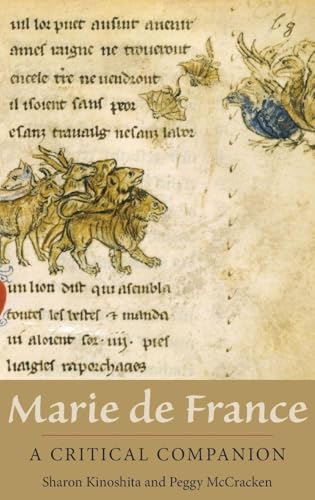 uil lor puet ausint auenir
ames raigne ne troueront
encele tre ne uendront
il isoient sans peor
esanz trauailg nesanz labor
un lion dist qui asembla
toutes les bestes & manda
ui aloient sor .iiij. pies
liaigles raporchacies
Marie de France
A CRITICAL COMPANION
Sharon Kinoshita and Peggy McCracken